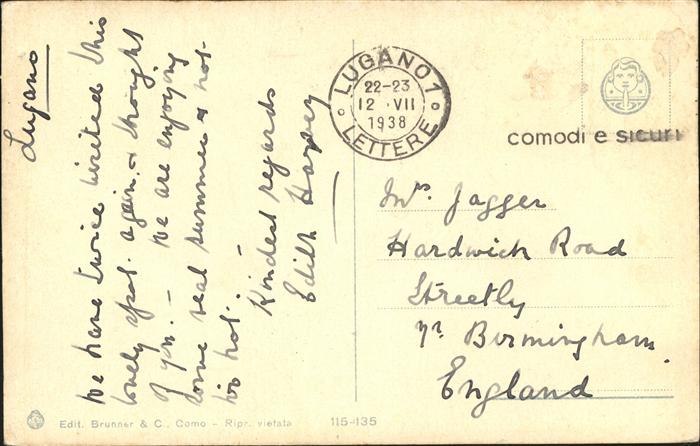 Lugano
We have twice visited this
lovely spot again & thought
of you. — We are enjoying
some real summer & not
too hot. —
Kindest regards
Edith Harvey
LUGANO 1
22-23
12 · VII
1938
LETTERE
comodi e sicuri
Mrs. Jagger
Hardwick Road
Streetly
nr. Birmingham
England
Edit. Brunner & C., Como - Ripr. vietata 115-135